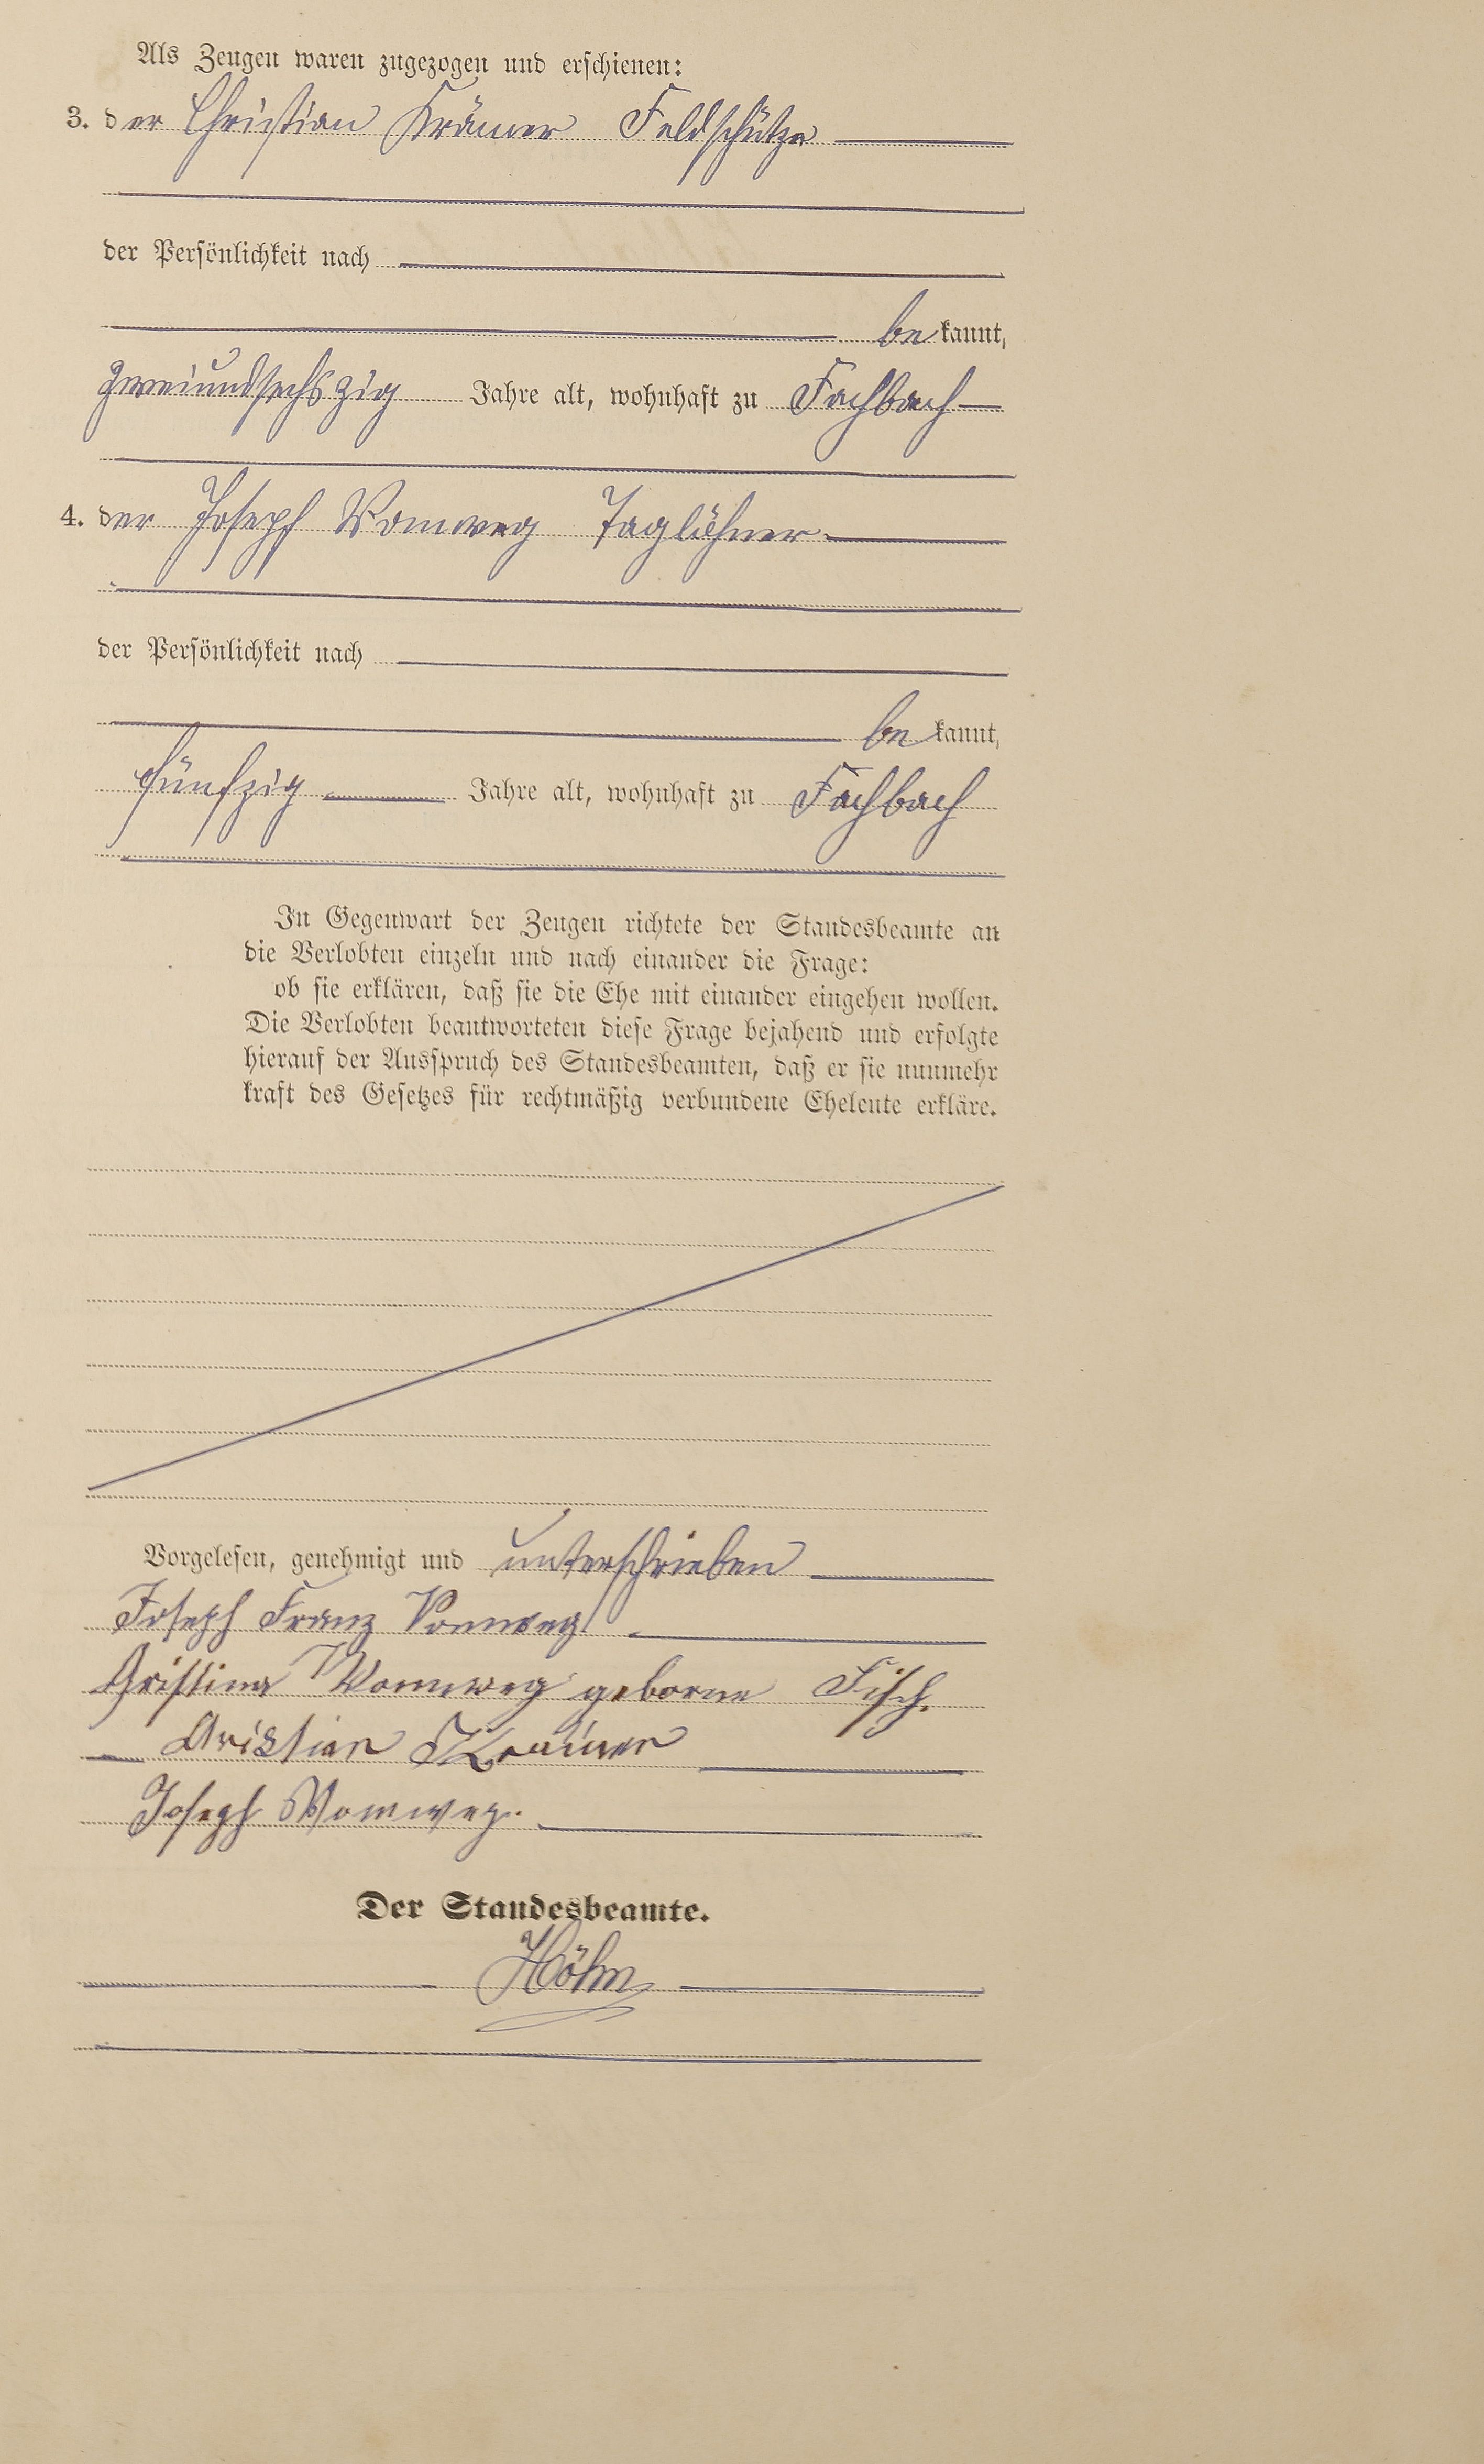 Als Zeugen waren zugezogen und erschienen:
3. der Christian Krämer Feldschütze
der Persönlichkeit nach
bekannt,
zweiundsechszig Jahre alt, wohnhaft zu Fachbach
4. der Joseph Vomweg Taglöhner
der Persönlichkeit nach
bekannt,
fünfzig Jahre alt, wohnhaft zu Fachbach
In Gegenwart der Zeugen richtete der Standesbeamte an
die Verlobten einzeln und nach einander die Frage:
ob sie erklären, daß sie die Ehe mit einander eingehen wollen.
Die Verlobten beantworteten diese Frage bejahend und erfolgte
hierauf der Ausspruch des Standesbeamten, daß er sie nunmehr
kraft des Gesetzes für rechtmäßig verbundene Eheleute erkläre.
Vorgelesen, genehmigt und unterschrieben
Joseph Franz Vomweg
Christina Vomweg geborne Fisch.
Christian Krämer
Joseph Vomweg.
Der Standesbeamte.
Höhn